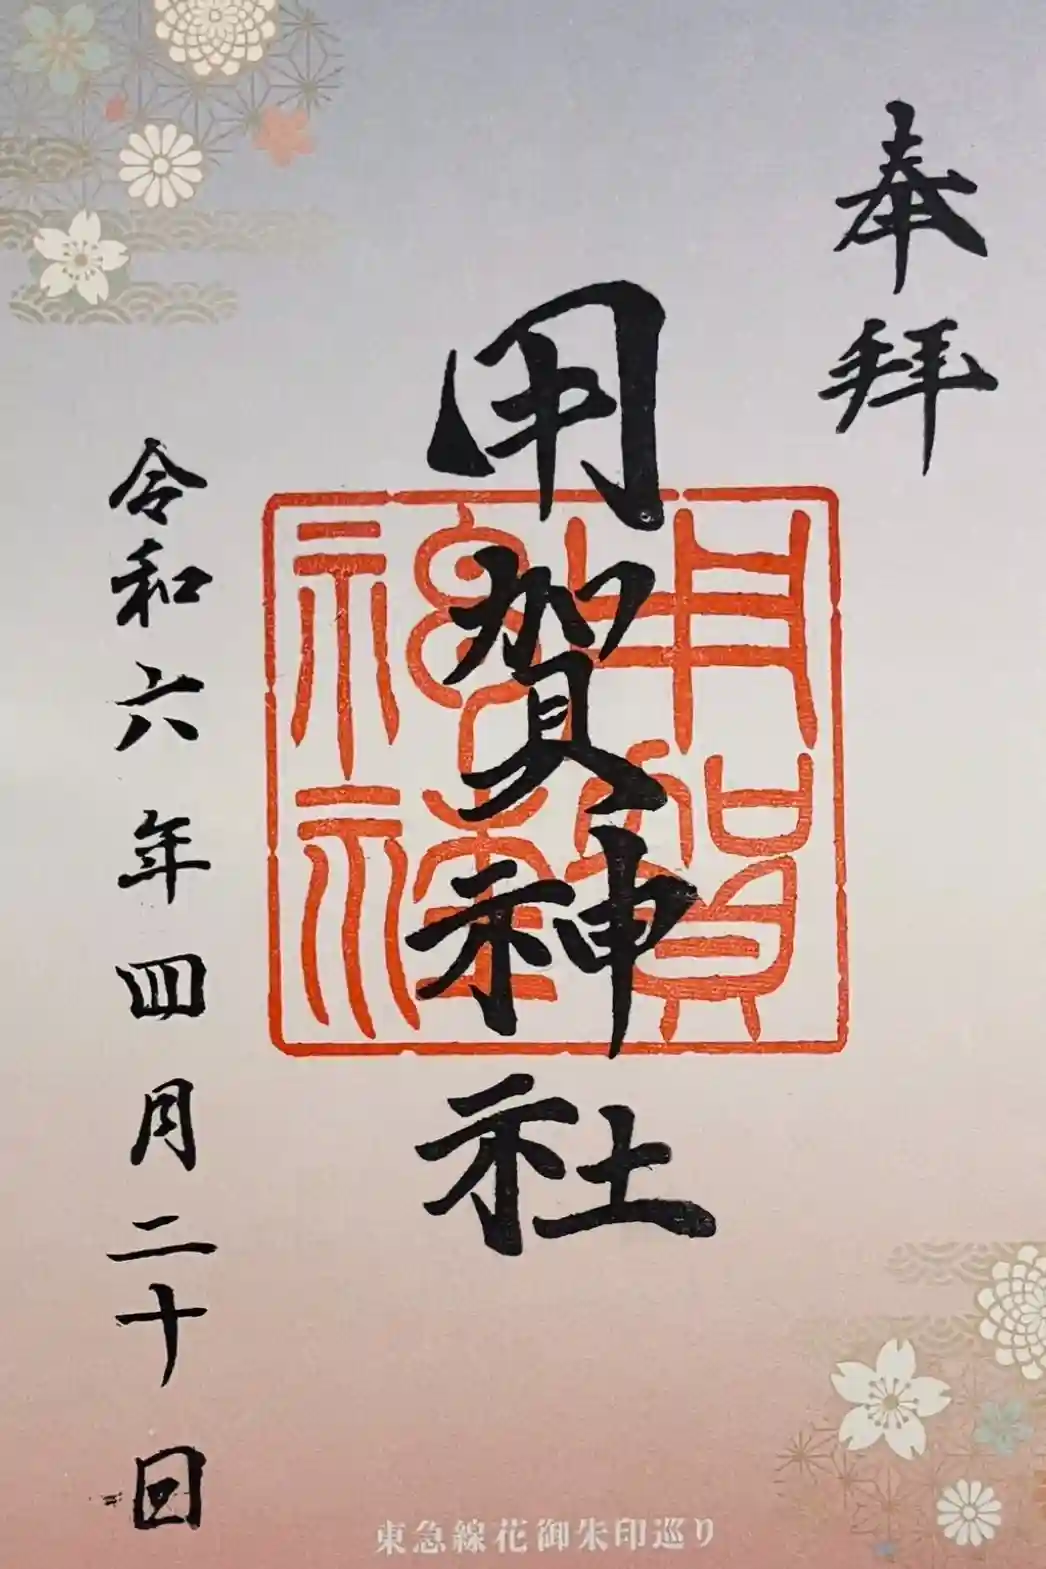 奉拝
用賀神社
用賀神社
令和六年四月二十日
東急線花御朱印巡り